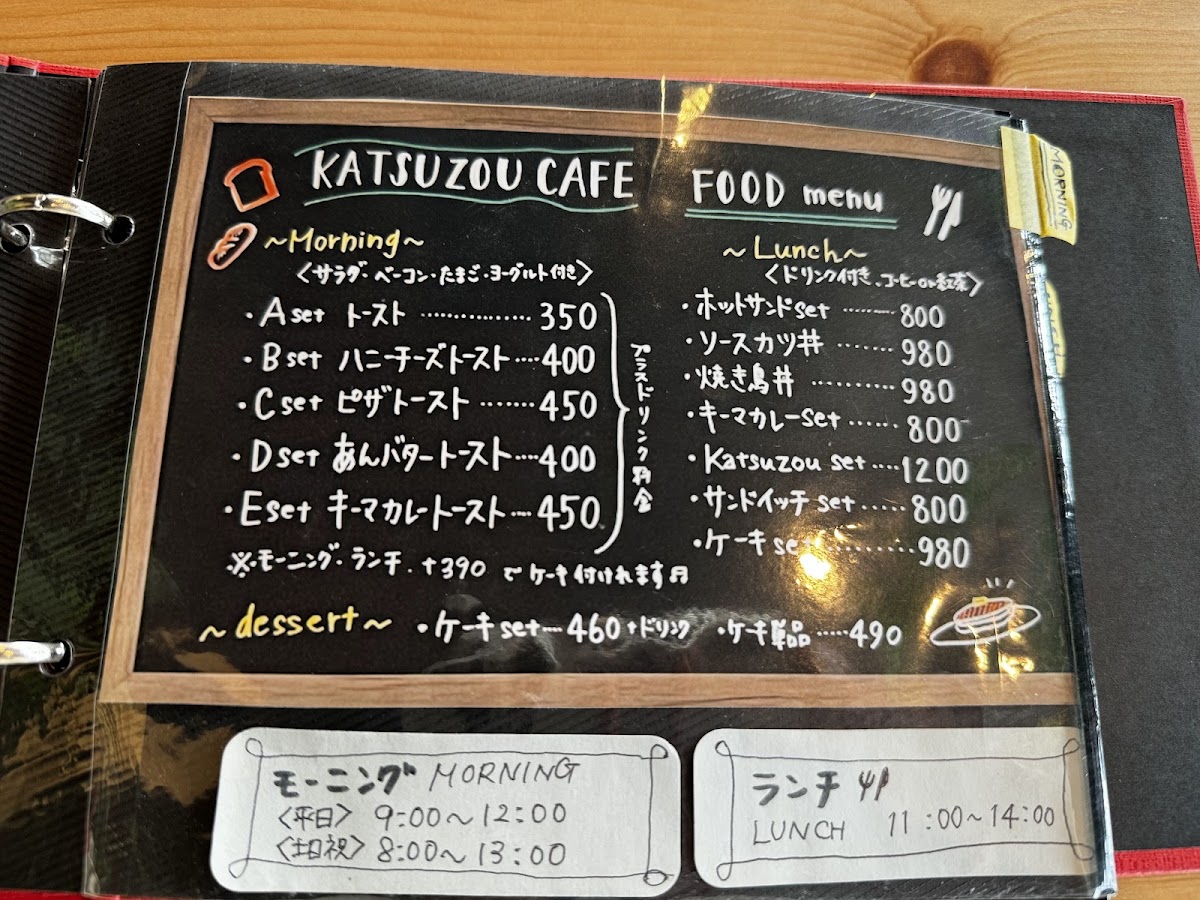 KATSUZOU CAFE FOOD menu
~Morning~
〈サラダ・ベーコン・たまご・ヨーグルト付き〉
・A set トースト …………… 350
・B set ハニーチーズトースト …. 400
・C set ピザトースト …….. 450
・D set あんバタートースト …. 400
・E set キーマカレートースト …. 450
プラスドリンク料金
※モーニング・ランチ. +390 でケーキ付けれます♬
~Lunch~
〈ドリンク付き.コーヒーor紅茶〉
・ホットサンドset ……… 800
・ソースカツ丼 ……. 980
・焼き鳥丼 ………. 980
・キーマカレーset …… 800
・Katsuzou set …. 1200
・サンドイッチ set ….. 800
・ケーキse ……… 980
~dessert~ ・ケーキset…. 460+ドリンク ・ケーキ単品 ….. 490
MORNING
モーニング MORNING
〈平日〉 9:00~12:00
〈土日祝〉 8:00~13:00
ランチ
LUNCH 11:00~14:00